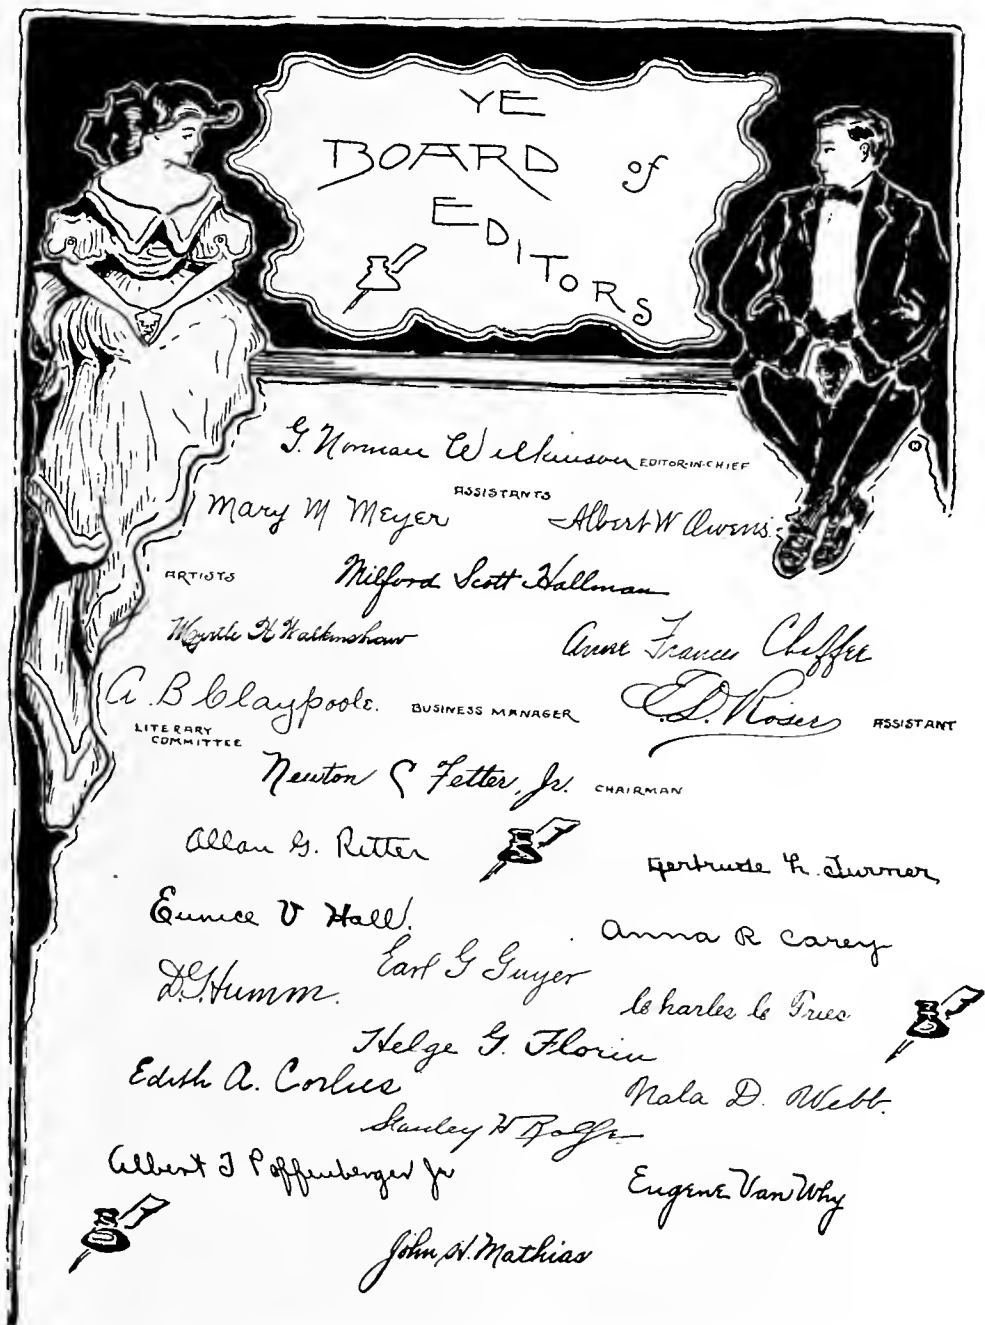 YE
BOARD of
EDITORS
G. Norman Wilkinson EDITOR-IN-CHIEF
ASSISTANTS
Mary M Meyer Albert W Owens.
ARTISTS Milford Scott Hallman
Myrtle H Walkinshaw Anne Frances Chaffee
A. B Claypoole. BUSINESS MANAGER E. D. Roser ASSISTANT
LITERARY
COMMITTEE
Newton C Fetter, Jr. CHAIRMAN
Allan G. Ritter
Gertrude h. Turner,
Eunice V Hall.
Anna R Carey
Earl G Guyer
D. G. Humm.
Charles C
Helge G. Florin
Edith A. Corlies
D. Webb.
Stanley H Rolfe
Albert T Poffenberger Jr
Eugene Van Why
John W. Mathias